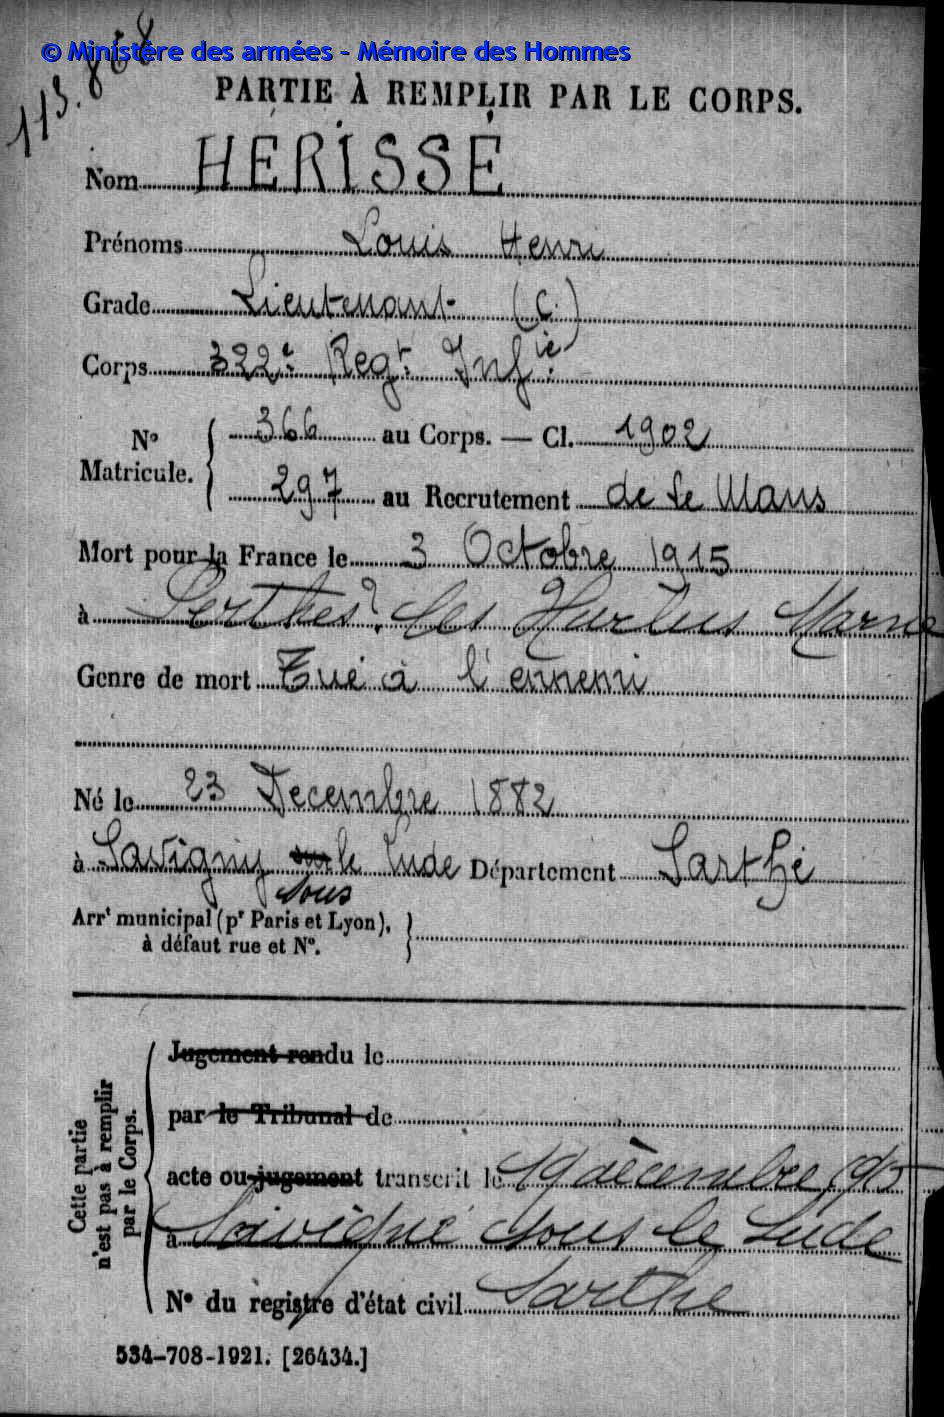 © Ministère des armées - Mémoire des Hommes
113.868
PARTIE À REMPLIR PAR LE CORPS.
Nom HÉRISSÉ
Prénoms Louis Henri
Grade Lieutenant (C.)
Corps 322e Regt. Infie.
No Matricule. 366 au Corps. — Cl. 1902
297 au Recrutement de Le Mans
Mort pour la France le 3 Octobre 1915
à Perthes? les Hurlus Marne
Genre de mort Tué à l'ennemi
Né le 23 Decembre 1882
à Savigny sur le Lude Département Sarthe
sous
Arrt municipal (pr Paris et Lyon),
à défaut rue et No.
Cette partie
n'est pas à remplir
par le Corps.
Jugement rendu le
par le Tribunal de
acte ou jugement transcrit le 19 décembre 1915
à Savigné sous le Lude
No du registre d'état civil Sarthe
534-708-1921. [26434.]